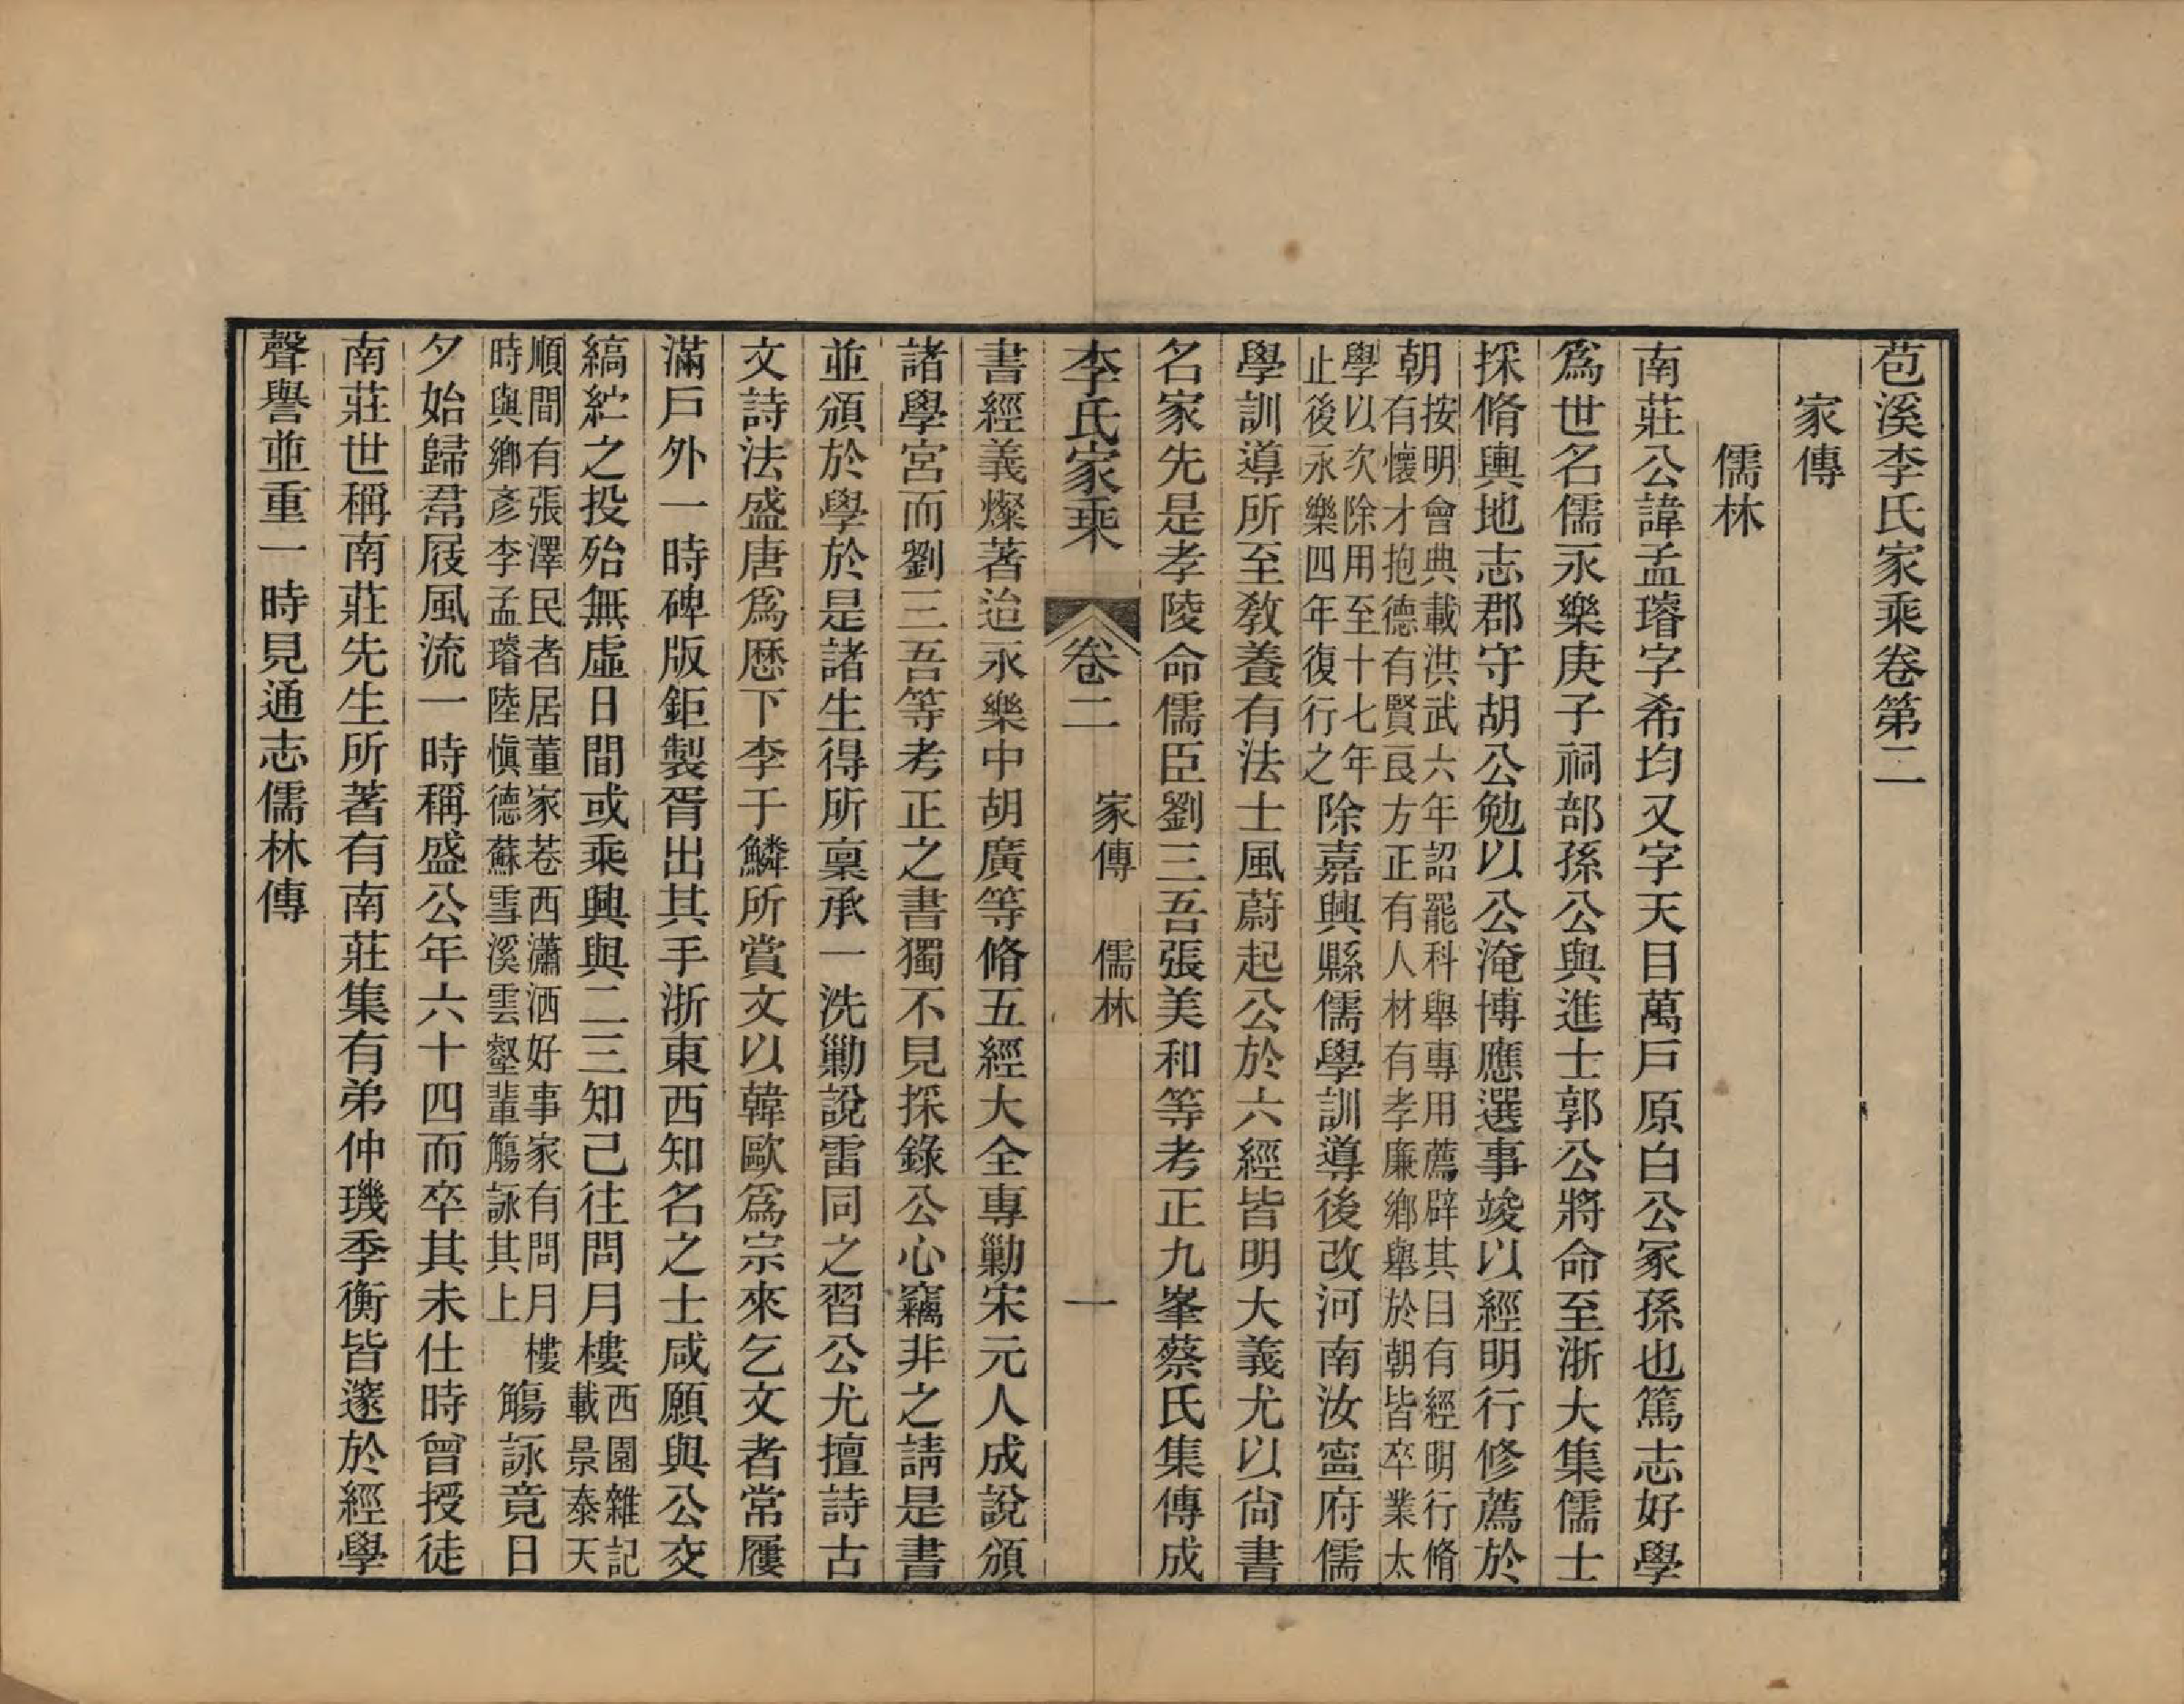 苞溪李氏家乘卷第二
家傳
儒林
南莊公諱孟璿字希均又字天目萬戶原白公冢孫也篤志好學
爲世名儒永樂庚子祠部孫公與進士郭公將命至浙大集儒士
採脩輿地志郡守胡公勉以公淹博應選事竣以經明行修薦於
朝按明會典載洪武六年詔罷科舉專用薦辟其目有經明行脩
有懷才抱德有賢良方正有人材有孝廉鄉舉於朝皆卒業太
學以次除用至十七年
止後永樂四年復行之除嘉興縣儒學訓導後改河南汝寧府儒
學訓導所至敎養有法士風蔚起公於六經皆明大義尤以尙書
名家先是孝陵命儒臣劉三吾張美和等考正九峯蔡氏集傳成
李氏家乘 卷二 家傳 儒林 一
書經義燦著迨永樂中胡廣等脩五經大全專勦宋元人成說頒
諸學宮而劉三吾等考正之書獨不見採錄公心竊非之請是書
並頒於學於是諸生得所稟承一洗勦說雷同之習公尤擅詩古
文詩法盛唐爲歷下李于鱗所賞文以韓歐爲宗來乞文者常屨
滿戶外一時碑版鉅製胥出其手浙東西知名之士咸願與公交
縞紵之投殆無虛日間或乘興與二三知己往問月樓西園雜記
載景泰天
順間有張澤民者居董家巷西瀟洒好事家有問月樓
時與鄉彥李孟璿陸愼德蘇雪溪雲壑輩觴詠其上觴詠竟日
夕始歸帬屐風流一時稱盛公年六十四而卒其未仕時曾授徒
南莊世稱南莊先生所著有南莊集有弟仲璣季衡皆邃於經學
聲譽並重一時見通志儒林傳